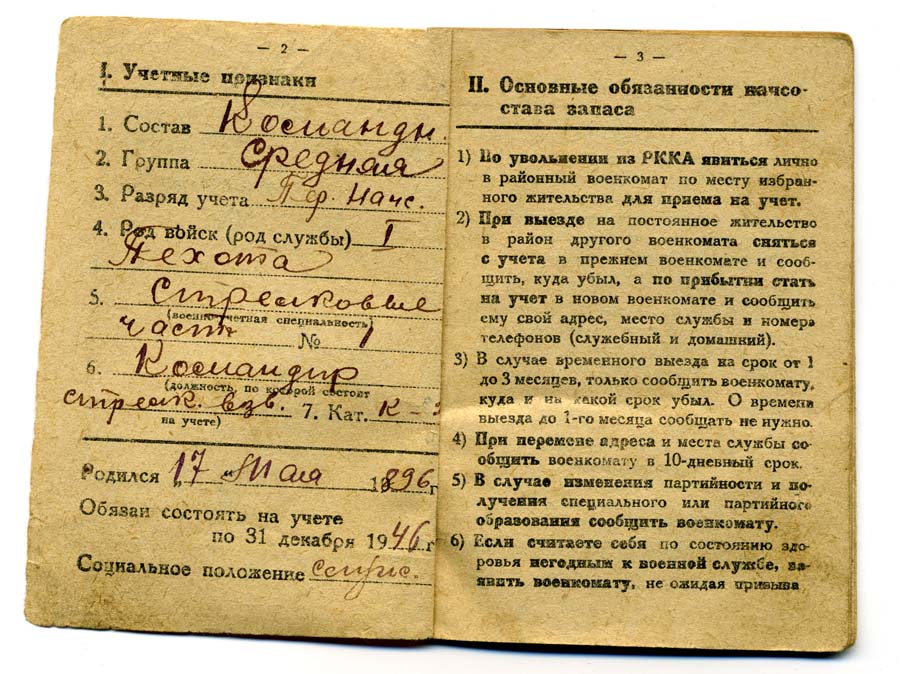 — 2 —
I. Учетные признаки
1. Состав Командн.
2. Группа Средняя
3. Разряд учета Пф. Начс.
4. Род войск (род службы) I
Пехота
5. Стрелковые
(военно-учетная специальность)
части № 1
6. Командир
(должность, по которой состоит
стрелк. взв. 7. Кат. К-3
на учете)
Родился 17 Мая 1896 г
Обязан состоять на учете
по 31 декабря 1946 г
Социальное положение
— 3 —
II. Основные обязанности начсо-
става запаса
1) По увольнении из РККА явиться лично
в районный военкомат по месту избран-
ного жительства для приема на учет.
2) При выезде на постоянное жительство
в район другого военкомата сняться
с учета в прежнем военкомате и сооб-
щить, куда убыл, а по прибытии стать
на учет в новом военкомате и сообщить
ему свой адрес, место службы и номера
телефонов (служебный и домашний).
3) В случае временного выезда на срок от 1
до 3 месяцев, только сообщить военкомату,
куда и на какой срок убыл. О времени
выезда до 1-го месяца сообщать не нужно.
4) При перемене адреса и места службы со-
общить военкомату в 10-дневный срок.
5) В случае изменения партийности и по-
лучения специального или партийного
образования сообщить военкомату.
6) Если считаете себя по состоянию здо-
ровья негодным к военной службе, за-
явить военкомату, не ожидая призыва